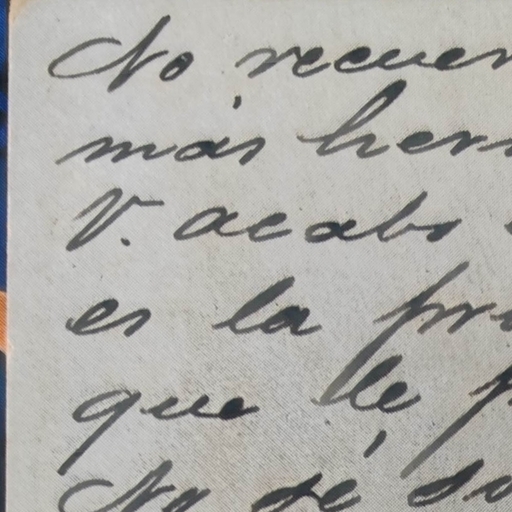 No recuer
más herm
V. acabo
es la pri
que le p
No sé si